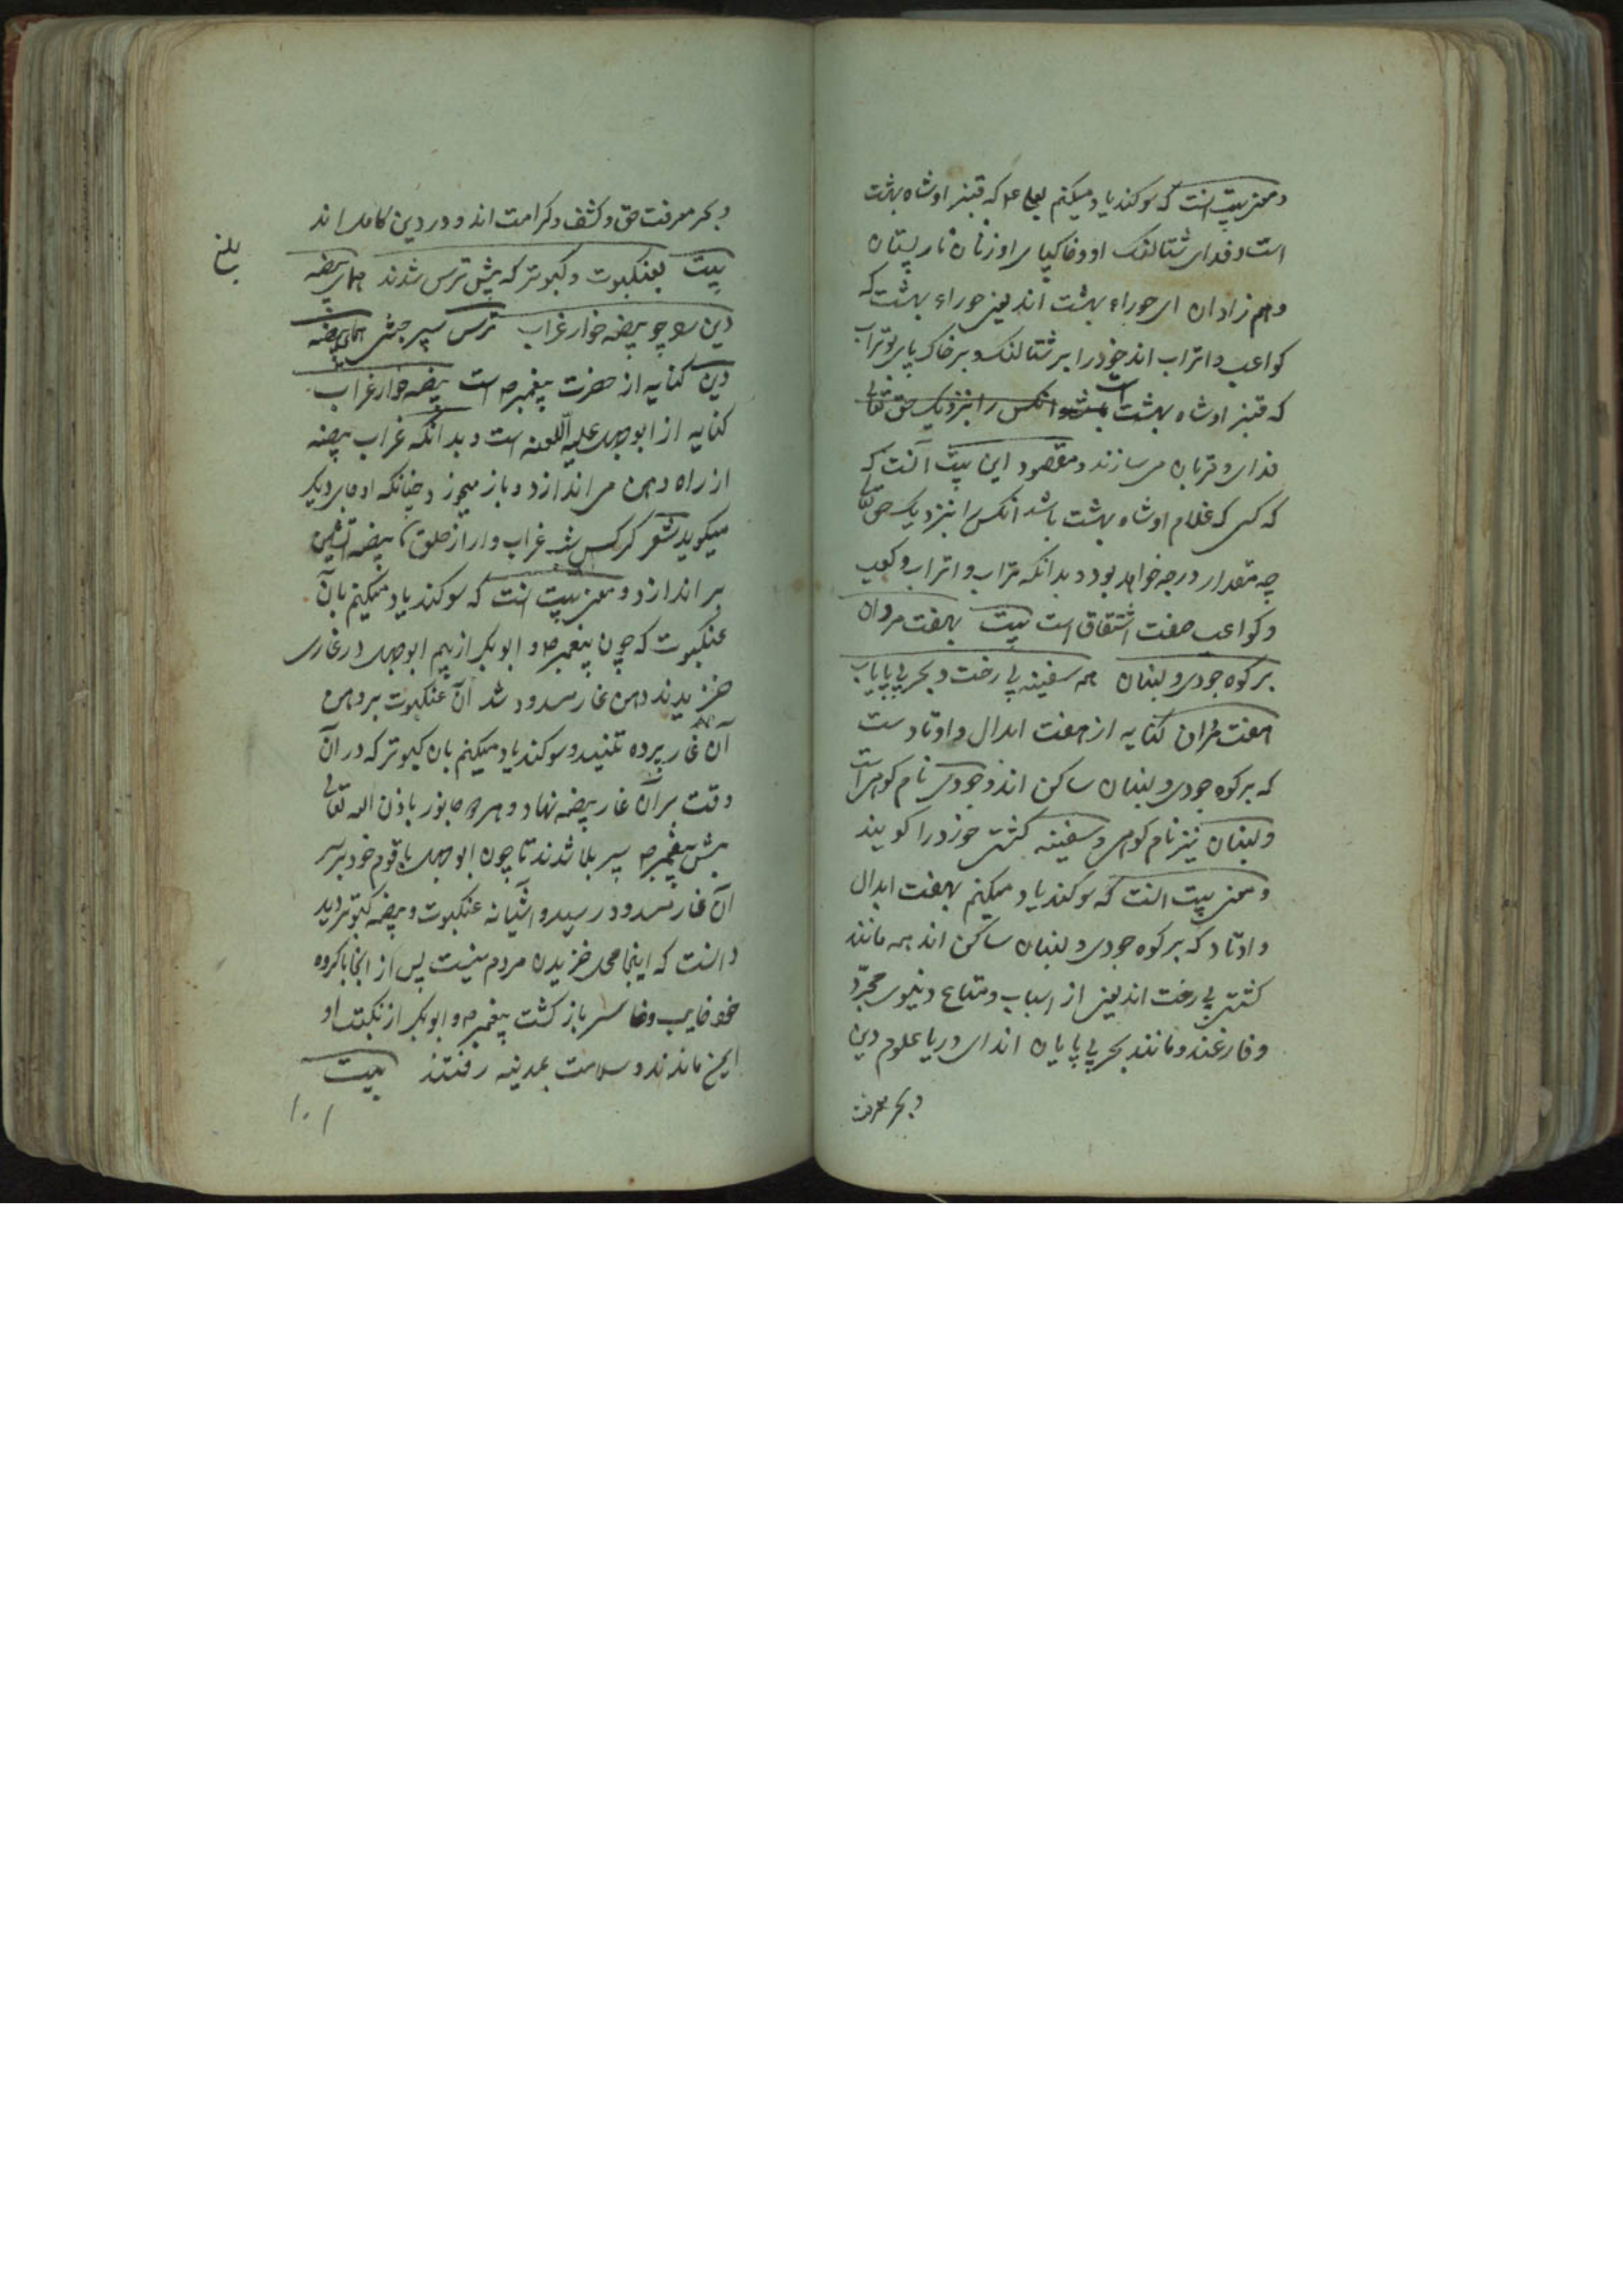 ومعنی بیت انست که سوکند یاد میکنم بعلی ع م که قنبر او شاه بهشت
است و فدای شتالنک او و خاکپای او زنان نار پستان
و هم زادان ای حوراء بهشت اند یعنی حوراء بهشت که
کواعب و اتراب اند خود را بر شتالنک و بر خاک پای بوتراب
که قنبر او شاه بهشت است انکس را بنزدیک حق تعالی
فدای و قربان می سازند و مقصود این بیت آنست که
که کسی که غلام او شاه بهشت باشد انکس را بنزدیک حق تعا
چه مقدار درجه خواهد بود و بدانکه تراب و اتراب و کعب
و کواعب صفت اشتقاق است بیت بهفت مردان
بر کوه جودی و لبنان همه سفینه بی رخت و بحر بی پایاب
هفت مردان کنایه از هفت ابدال و اوتادست
که بر کوه جودی و لبنان ساکن اند و جودی نام کوهی است
و لبنان نیز نام کوهی و سفینه کشتی خورد را کویند
و معنی بیت انست که سوکند یاد میکنم بهفت ابدال
و اوتاد که بر کوه جودی و لبنان ساکن اند همه مانند
کشتی بی رخت اند یعنی از اسباب و متاع دنیوی مجرّد
و فارغند و مانند بحر بی پایان اند ای دریا علوم دین
و بحر معرفت
و بحر معرفت حق و کشف و کرامت اند و در دین کامل اند
بلغ
بیت بعنکبوت و کبوتر که پیش ترس شدند همای بیضه
دین را چو بیضه خوار غراب ترس سپر جبشی همای بیضه
دین کنایه از حضرت پیغمبر ص است بیضه خوار غراب
کنایه از ابوجهل علیه اللعنه است و بدانکه غراب بیضه
از راه دهن می اندازد و باز میخورد چنانکه او جای دیکر
میکوید شعر کرکس شب غراب وار از حلق بیضه آتشین
بر اندازد و معنی بیت انست که سوکند یاد میکنم بآن
عنکبوت که چون پیغمبر ص و ابوبکر از بیم ابوجهل در غاری
خزیدند دهن غار مسدود شد آن عنکبوت بر دهن
آن غار پرده تنید و سوکند یاد میکنم بان کبوتر که در آن
وقت بر آن غار بیضه نهاد و هر دو جانور باذن الله تعالی
پیش پیغمبر ص سپر بلا شدند تا چون ابوجهل با قوم خود بر سر
آن غار مسدود رسید و آشیانه عنکبوت و بیضه کبوتر دید
دانست که اینجا محل خزیدن مردم نیست پس از انجا با کروه
خود خایب و خاسر باز کشت پیغمبر ص و ابوبکر از نکبت او
ایمن ماندند و سلامت بمدینه رفتند بیت
۱۰۱